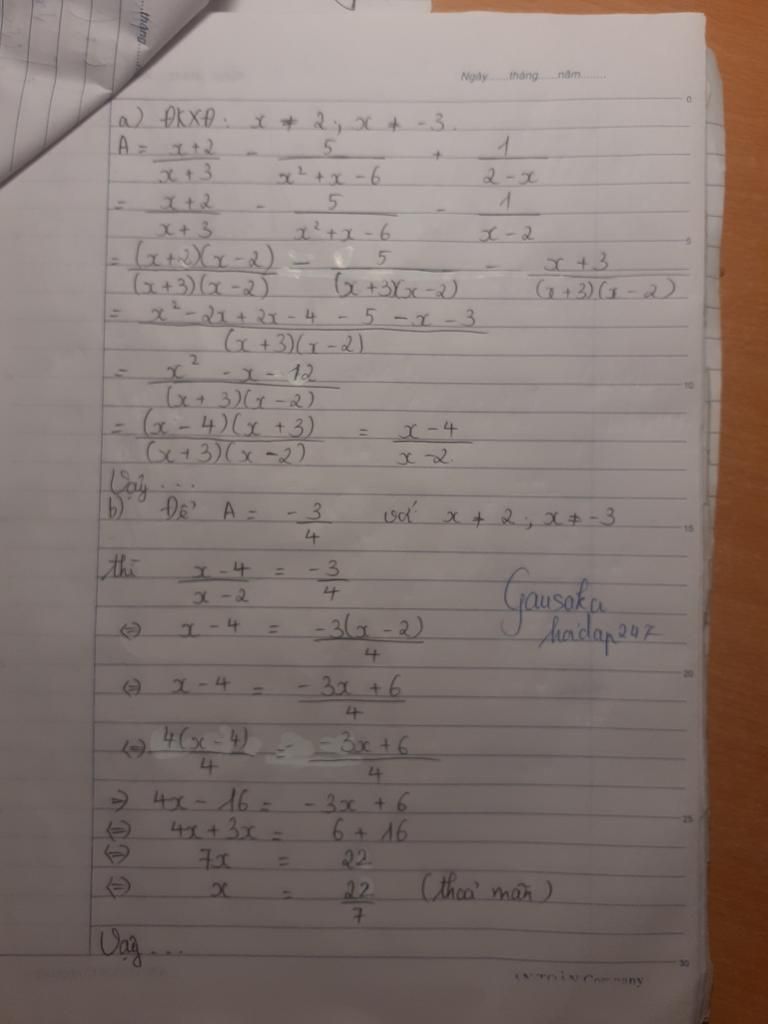 tháng
Ngày......tháng......năm........
0
a) ĐKXĐ: x ≠ 2; x ≠ -3.
A = \frac{x+2}{x+3} - \frac{5}{x² + x - 6} + \frac{1}{2 - x}
= \frac{x+2}{x+3} - \frac{5}{x² + x - 6} - \frac{1}{x - 2}
5
= \frac{(x+2)(x-2)}{(x+3)(x-2)} - \frac{5}{(x+3)(x-2)} - \frac{x+3}{(x+3)(x-2)}
= \frac{x² - 2x + 2x - 4 - 5 - x - 3}{(x+3)(x-2)}
= \frac{x² - x - 12}{(x+3)(x-2)}
10
= \frac{(x-4)(x+3)}{(x+3)(x-2)} = \frac{x-4}{x-2}
Vậy ...
b) Để A = \frac{-3}{4} với x ≠ 2; x ≠ -3
15
thì \frac{x-4}{x-2} = \frac{-3}{4}
Gausoka
hoidap247
⇔ x - 4 = \frac{-3(x-2)}{4}
20
⇔ x - 4 = \frac{-3x+6}{4}
⇔ \frac{4(x-4)}{4} = \frac{-3x+6}{4}
⇒ 4x - 16 = -3x + 6
25
⇔ 4x + 3x = 6 + 16
⇔ 7x = 22
⇔ x = \frac{22}{7} (thoả mãn)
Vậy ...
30
Company